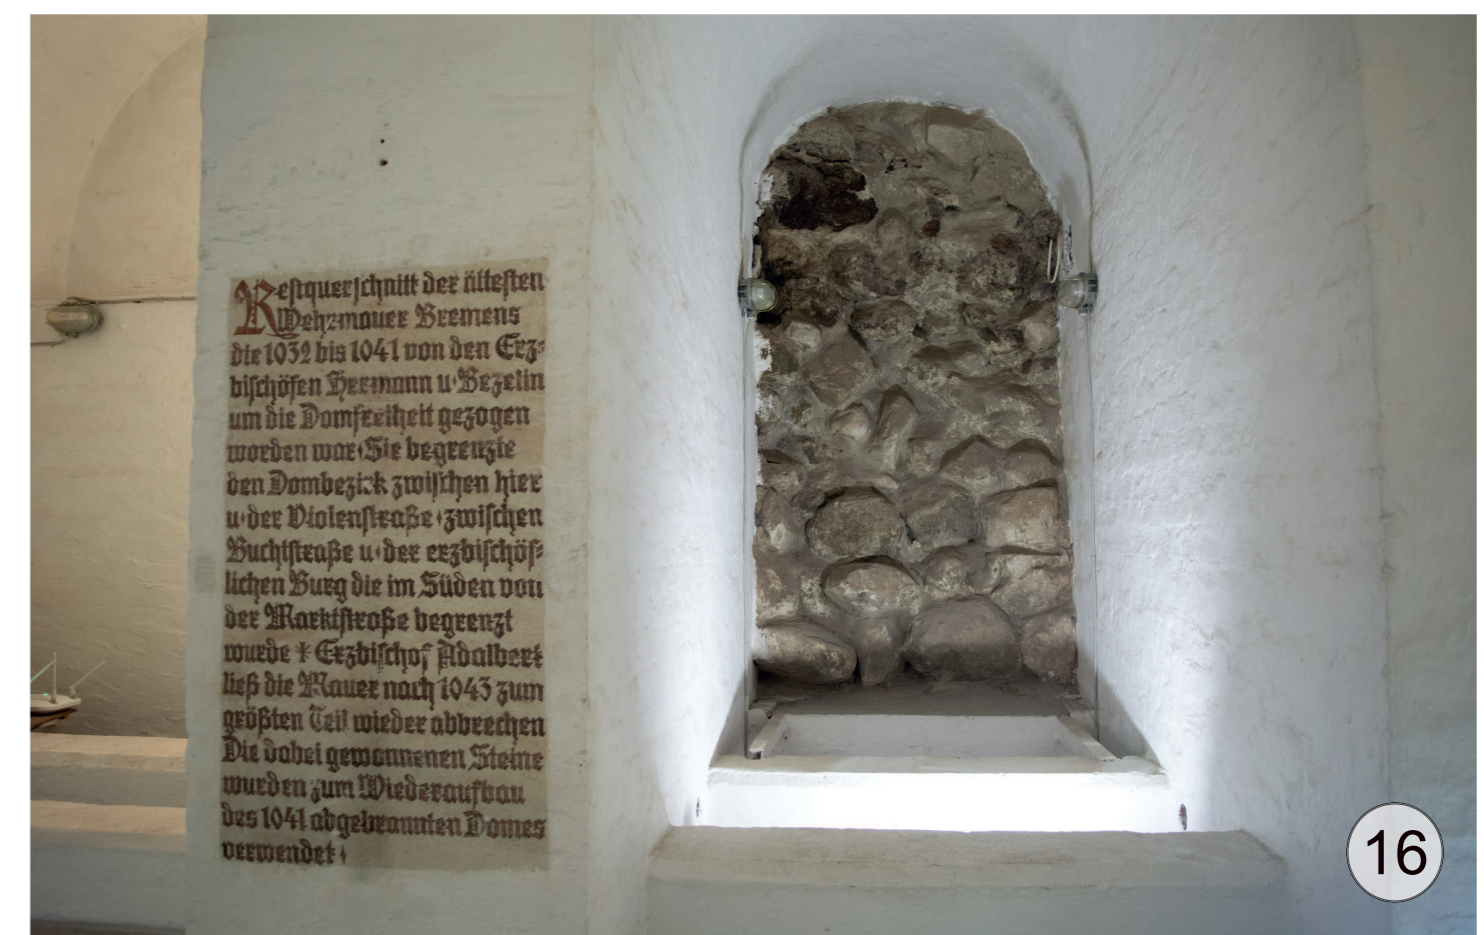 Restquerschnitt der ältesten
Wehrmauer Bremens
die 1032 bis 1041 von den Erz⸗
bischöfen Hermann u·Bezelin
um die Domfreiheit gezogen
worden war·Sie begrenzte
den Dombezirk zwischen hier
u·der Violenstraße·zwischen
Buchtstraße u·der erzbischöf⸗
lichen Burg die im Süden von
der Marktstraße begrenzt
wurde · Erzbischof Adalbert
ließ die Mauer nach 1043 zum
größten Teil wieder abbrechen
Die dabei gewonnenen Steine
wurden zum Wiederaufbau
des 1041 abgebrannten Domes
verwendet·
16